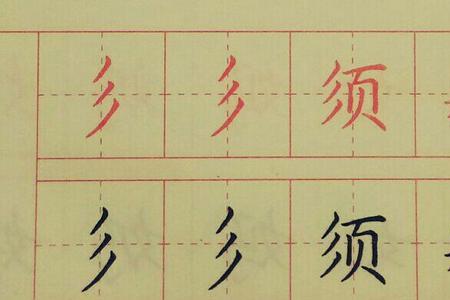 彡 彡 须
彡 彡 须